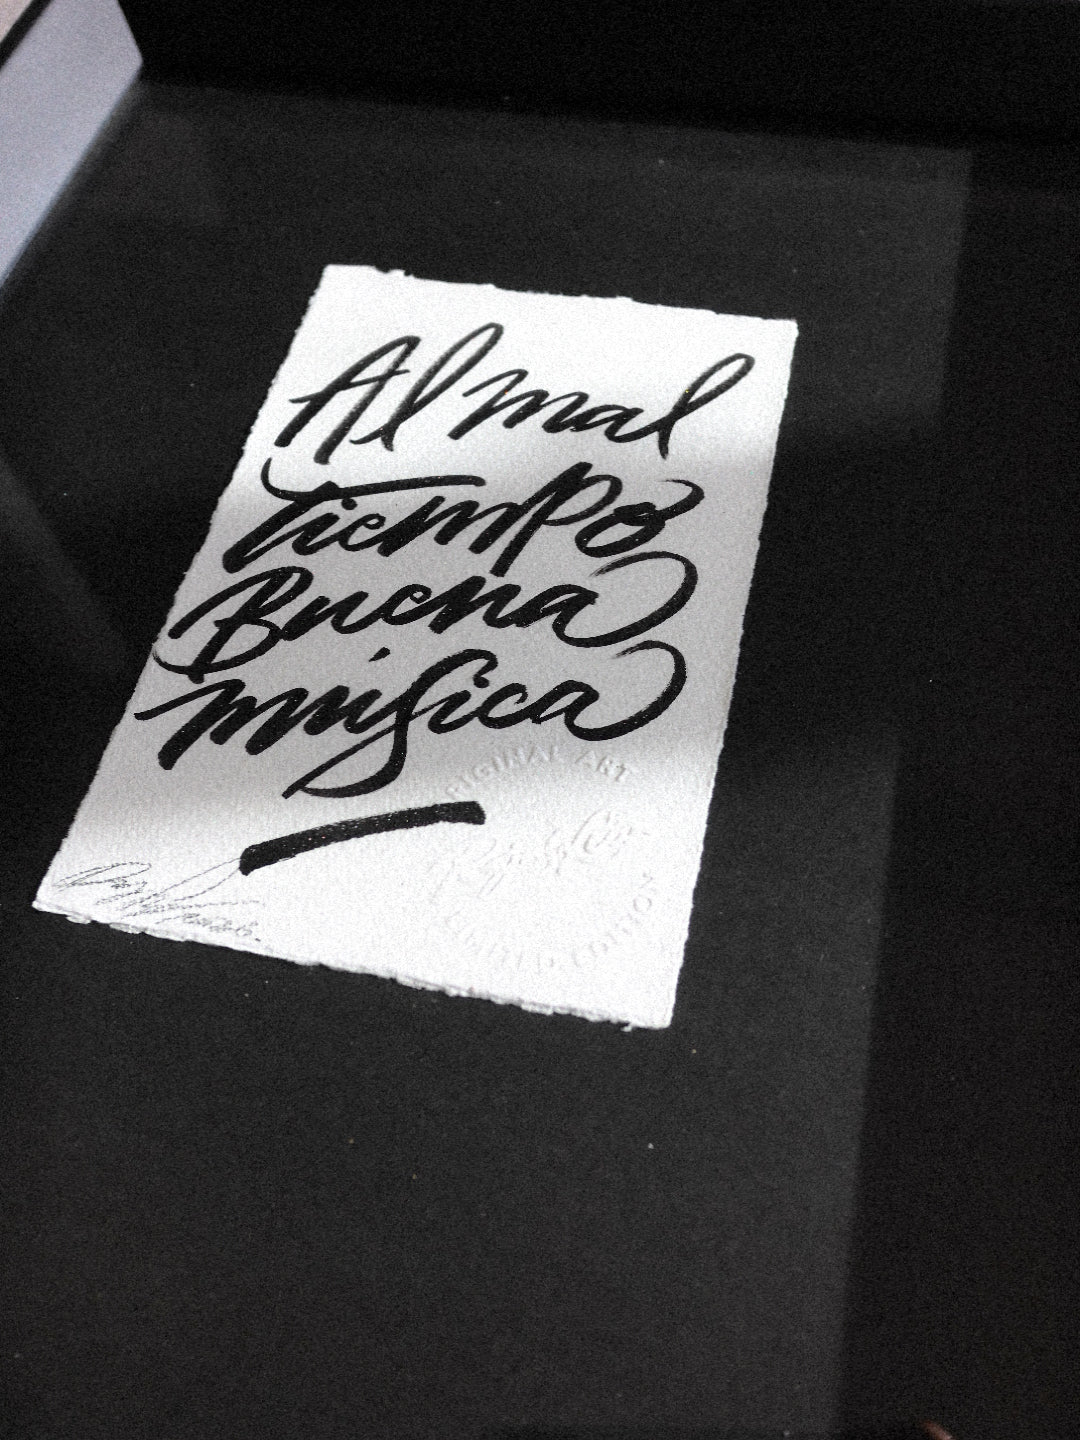 Al mal
tiempo
Buena
música
ORIGINAL ART
LIMITED EDITION